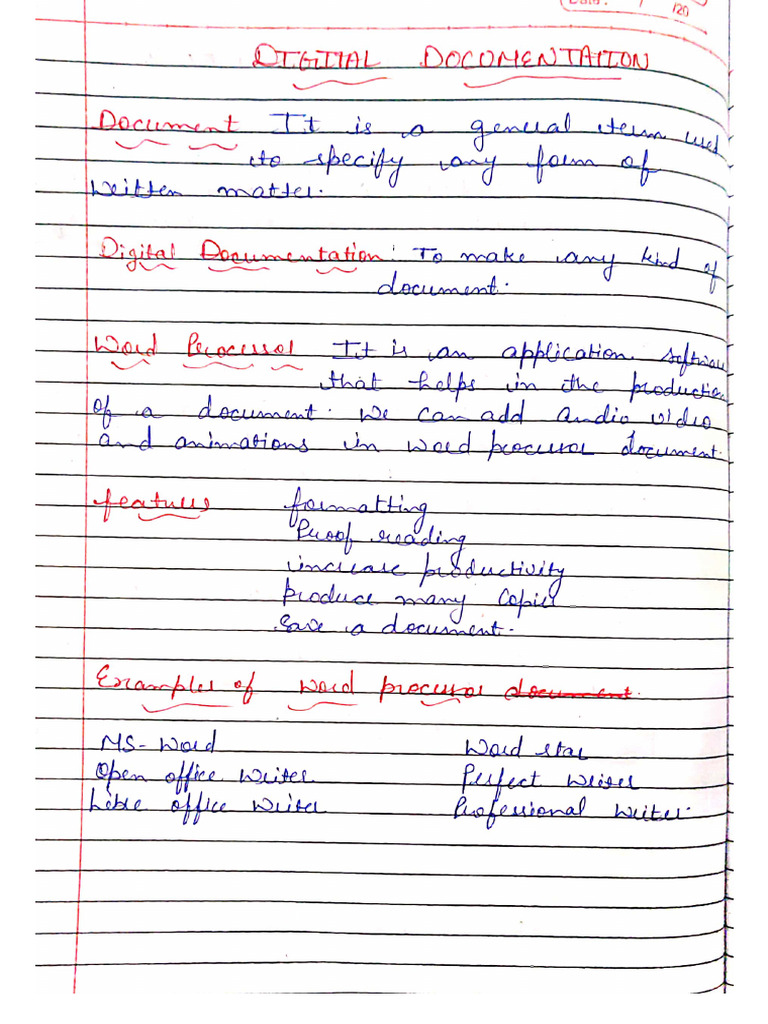 Date: / /20
DIGITAL DOCUMENTATION
Document It is a general term used
to specify any form of
written matter.
Digital Documentation: To make any kind of
document.
Word Processor It is an application software
that helps in the production
of a document. We can add audio video
and animations in word processor document.
features formatting
Proof reading
increase productivity
produce many copies
Save a document.
Examples of word processor document.
MS-Word Word star
Open office writer Perfect writer
Libre office writer Professional writer.